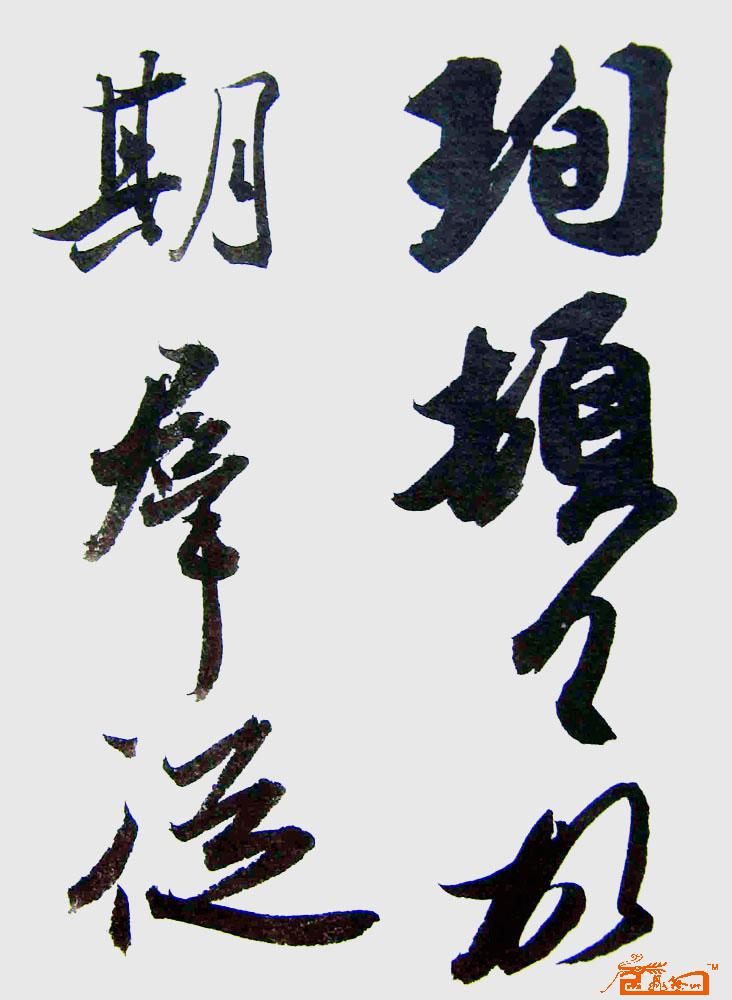 珣頓首
期羣從